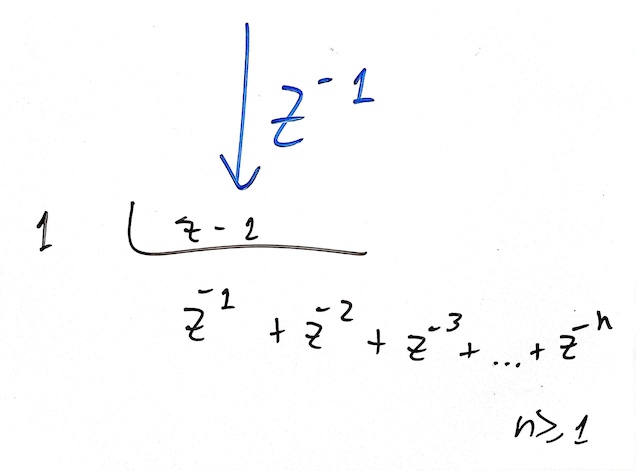 z⁻¹
1 z - 1
z⁻¹ + z⁻² + z⁻³ + ... + z⁻ⁿ
n ≥ 1